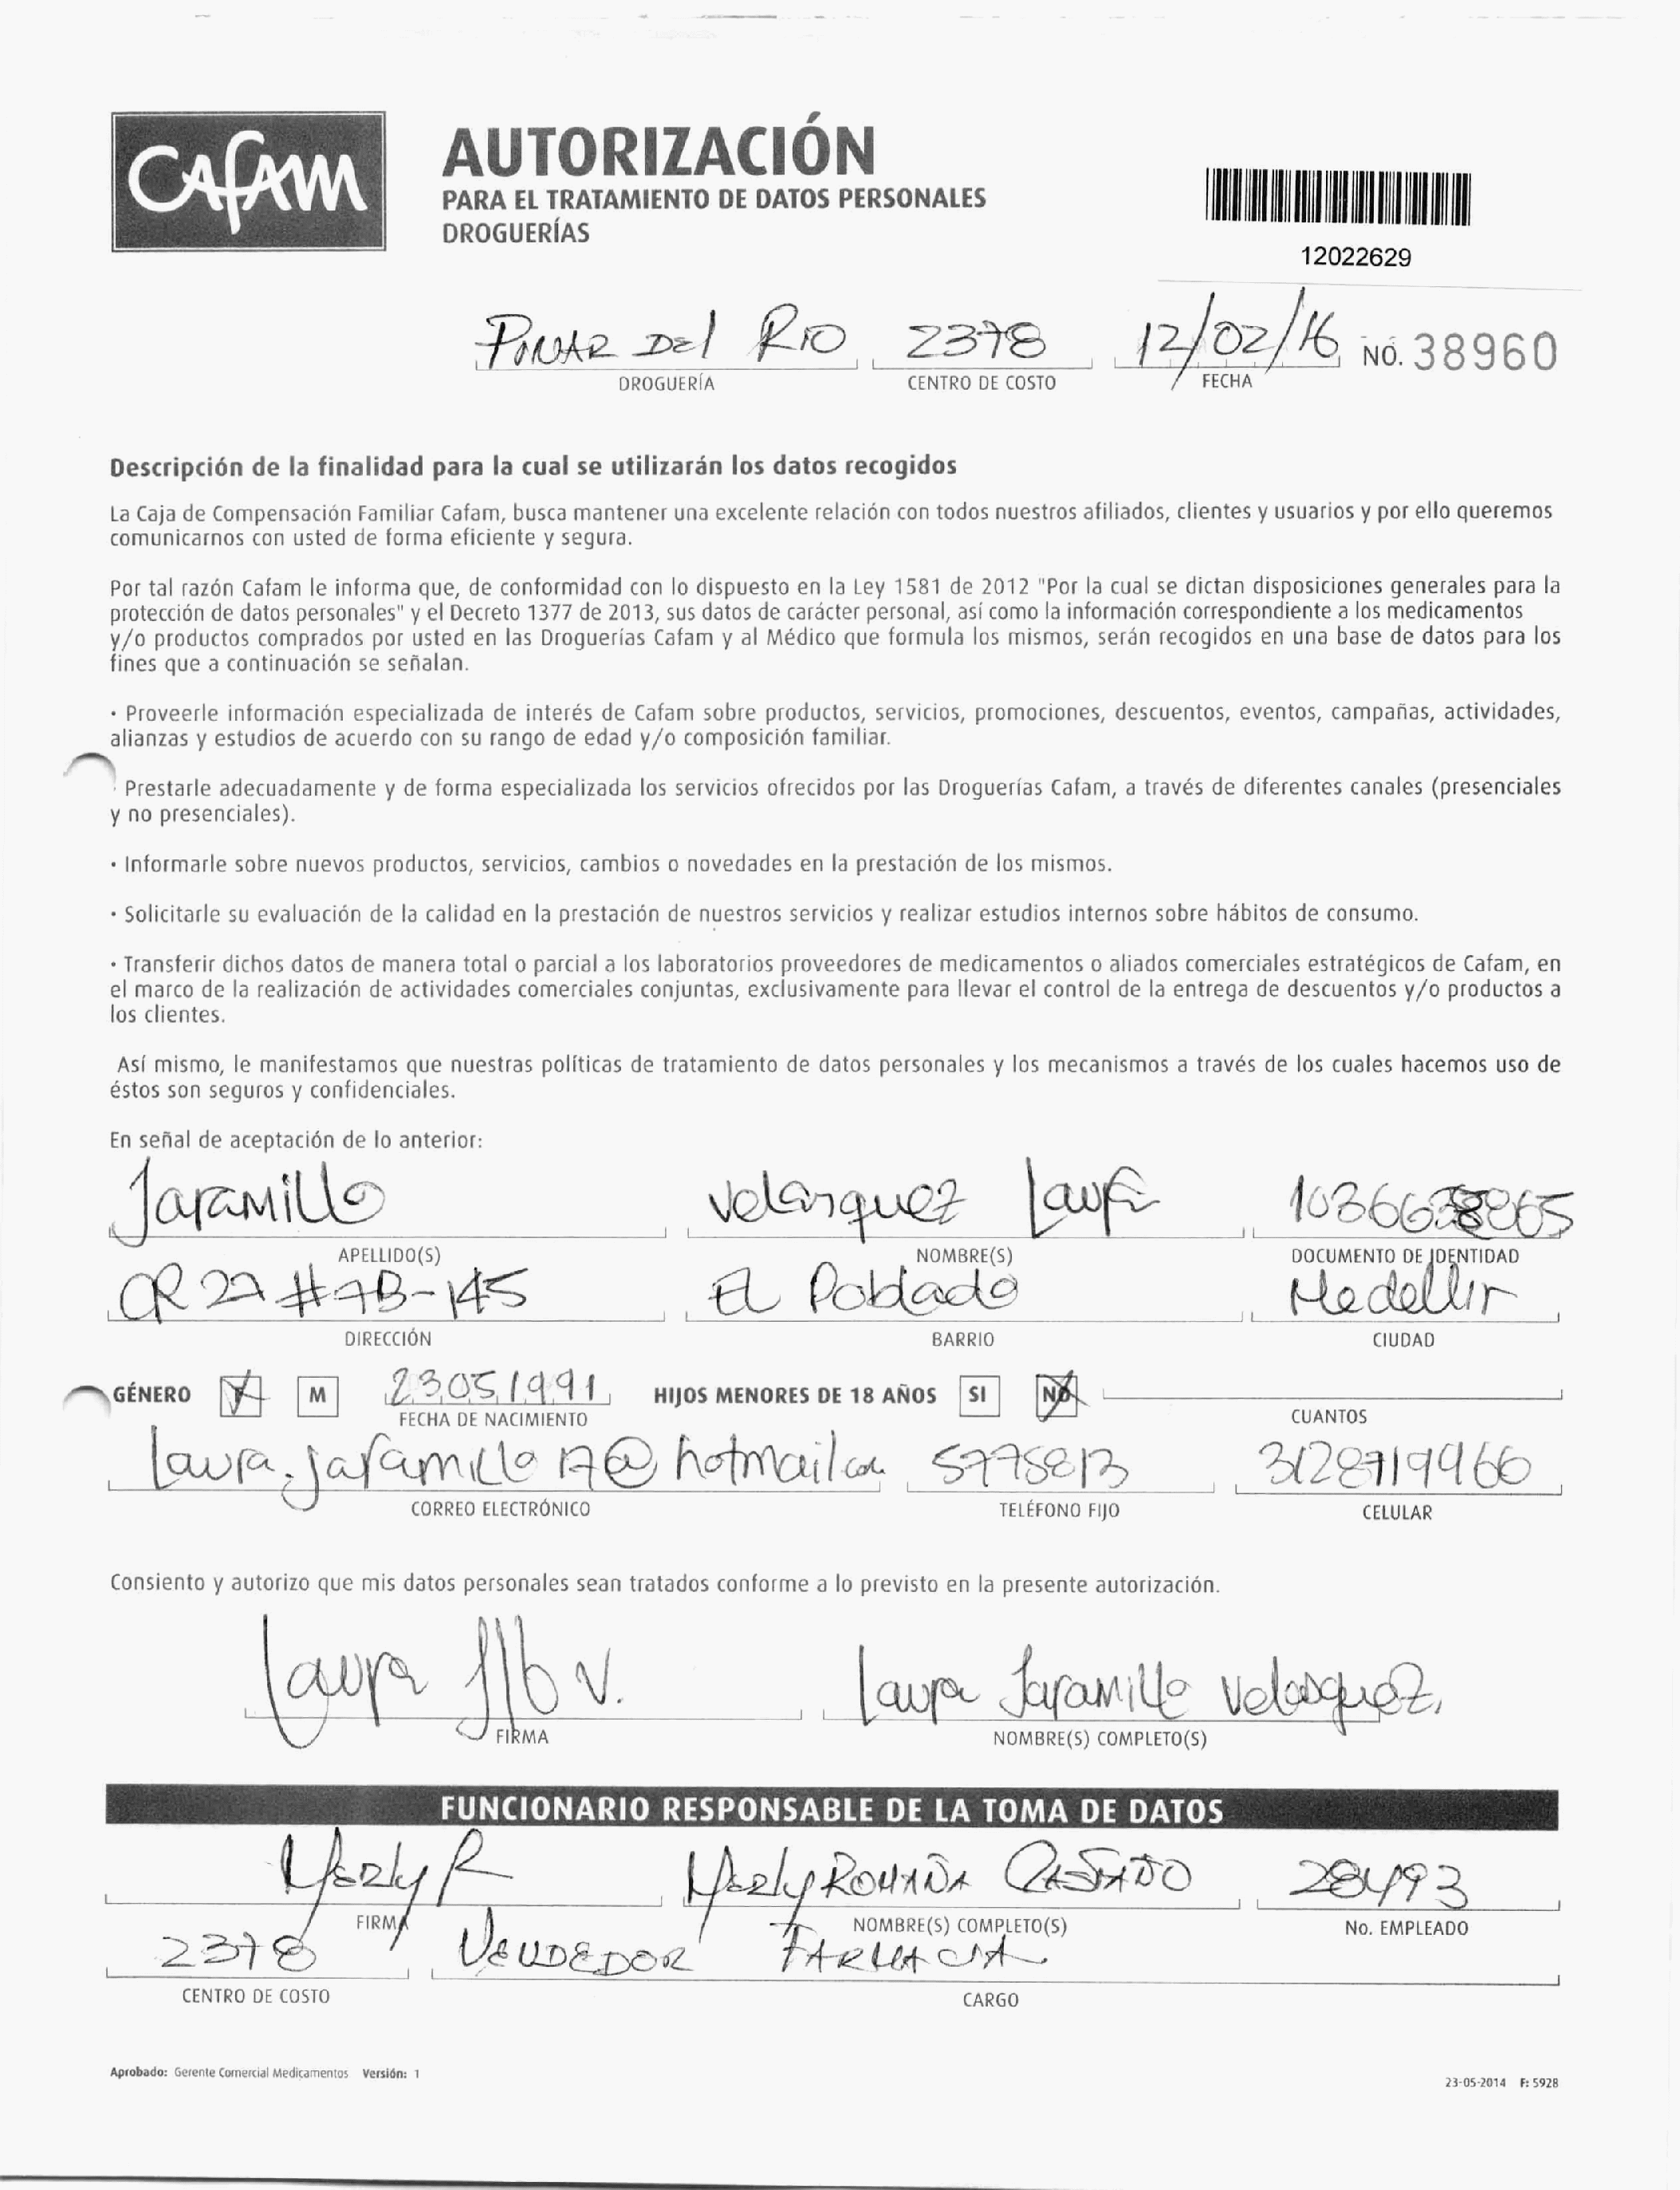 CAFAM
AUTORIZACIÓN
PARA EL TRATAMIENTO DE DATOS PERSONALES
DROGUERÍAS
12022629
Pinar Del Rio 2378 12/02/16 No. 38960
DROGUERÍA CENTRO DE COSTO FECHA
Descripción de la finalidad para la cual se utilizarán los datos recogidos
La Caja de Compensación Familiar Cafam, busca mantener una excelente relación con todos nuestros afiliados, clientes y usuarios y por ello queremos
comunicarnos con usted de forma eficiente y segura.
Por tal razón Cafam le informa que, de conformidad con lo dispuesto en la Ley 1581 de 2012 "Por la cual se dictan disposiciones generales para la
protección de datos personales" y el Decreto 1377 de 2013, sus datos de carácter personal, así como la información correspondiente a los medicamentos
y/o productos comprados por usted en las Droguerías Cafam y al Médico que formula los mismos, serán recogidos en una base de datos para los
fines que a continuación se señalan.
· Proveerle información especializada de interés de Cafam sobre productos, servicios, promociones, descuentos, eventos, campañas, actividades,
alianzas y estudios de acuerdo con su rango de edad y/o composición familiar.
· Prestarle adecuadamente y de forma especializada los servicios ofrecidos por las Droguerías Cafam, a través de diferentes canales (presenciales
y no presenciales).
· Informarle sobre nuevos productos, servicios, cambios o novedades en la prestación de los mismos.
· Solicitarle su evaluación de la calidad en la prestación de nuestros servicios y realizar estudios internos sobre hábitos de consumo.
· Transferir dichos datos de manera total o parcial a los laboratorios proveedores de medicamentos o aliados comerciales estratégicos de Cafam, en
el marco de la realización de actividades comerciales conjuntas, exclusivamente para llevar el control de la entrega de descuentos y/o productos a
los clientes.
Así mismo, le manifestamos que nuestras políticas de tratamiento de datos personales y los mecanismos a través de los cuales hacemos uso de
éstos son seguros y confidenciales.
En señal de aceptación de lo anterior:
Jaramillo Velasquez Laura
APELLIDO(S) NOMBRE(S) DOCUMENTO DE IDENTIDAD
CR 27 #7B-145 El Poblado Medellin
DIRECCIÓN BARRIO CIUDAD
GÉNERO M 23051991 HIJOS MENORES DE 18 AÑOS SI NO
FECHA DE NACIMIENTO CUANTOS
laura.jaramillo17@hotmail.com 5775813 3128719966
CORREO ELECTRÓNICO TELÉFONO FIJO CELULAR
Consiento y autorizo que mis datos personales sean tratados conforme a lo previsto en la presente autorización.
Laura Jllo V. Laura Jaramillo Velasquez.
FIRMA NOMBRE(S) COMPLETO(S)
FUNCIONARIO RESPONSABLE DE LA TOMA DE DATOS
Romaña Castaño 28493
FIRMA NOMBRE(S) COMPLETO(S) No. EMPLEADO
2378 Vendedor Farmacia
CENTRO DE COSTO CARGO
Aprobado: Gerente Comercial Medicamentos Versión: 1
23-05-2014 F: 5928